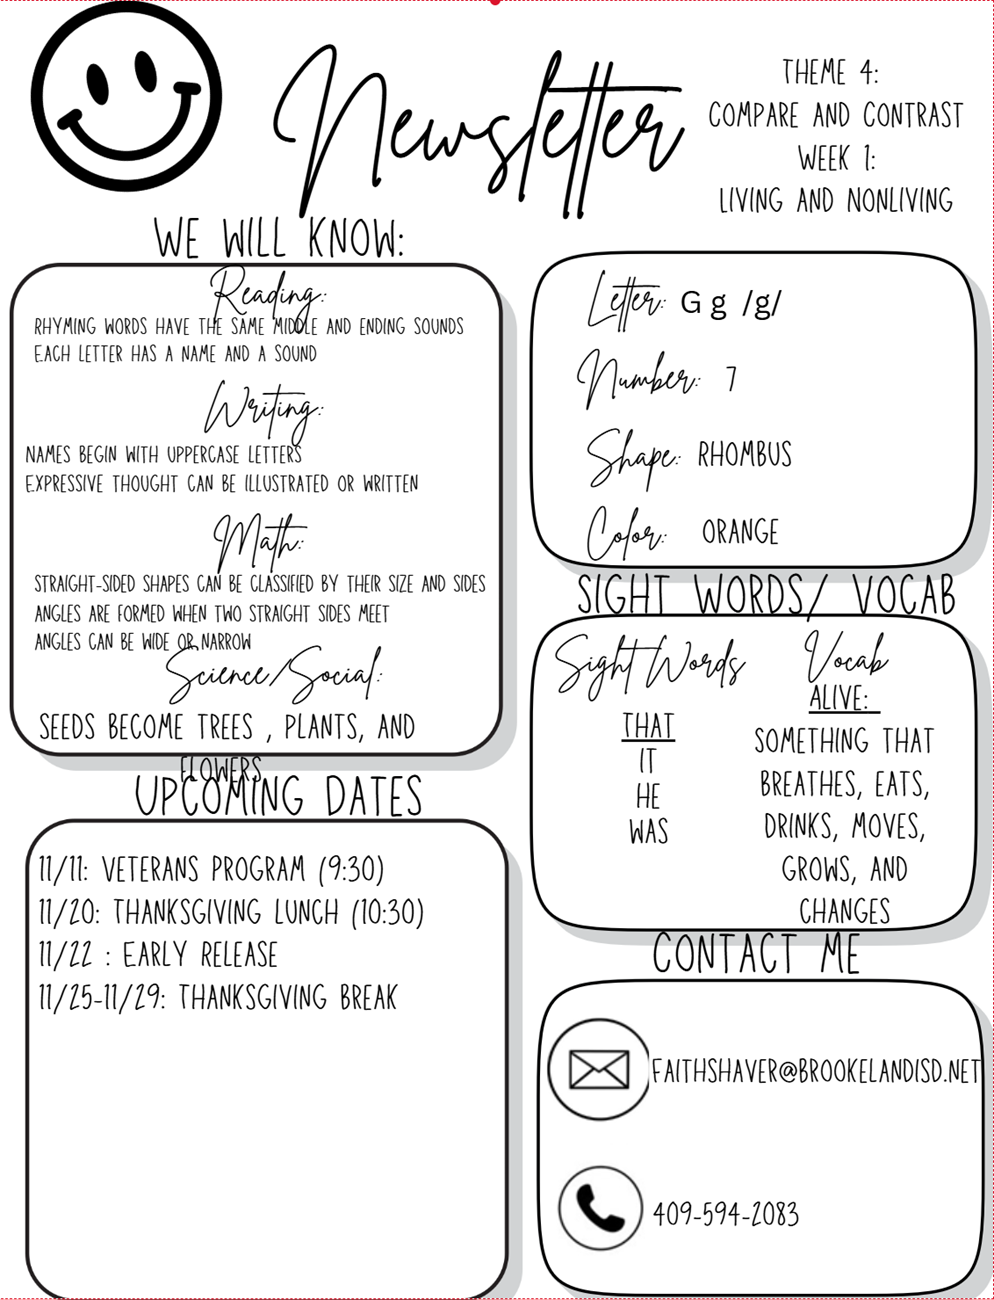 Newsletter
THEME 4:
COMPARE AND CONTRAST
WEEK 1:
LIVING AND NONLIVING
WE WILL KNOW:
Reading:
RHYMING WORDS HAVE THE SAME MIDDLE AND ENDING SOUNDS
EACH LETTER HAS A NAME AND A SOUND
Writing:
NAMES BEGIN WITH UPPERCASE LETTERS
EXPRESSIVE THOUGHT CAN BE ILLUSTRATED OR WRITTEN
Math:
STRAIGHT-SIDED SHAPES CAN BE CLASSIFIED BY THEIR SIZE AND SIDES
ANGLES ARE FORMED WHEN TWO STRAIGHT SIDES MEET
ANGLES CAN BE WIDE OR NARROW
Science/Social:
SEEDS BECOME TREES , PLANTS, AND
FLOWERS
UPCOMING DATES
11/11: VETERANS PROGRAM (9:30)
11/20: THANKSGIVING LUNCH (10:30)
11/22 : EARLY RELEASE
11/25-11/29: THANKSGIVING BREAK
Letter: G g /g/
Number: 7
Shape: RHOMBUS
Color: ORANGE
SIGHT WORDS/ VOCAB
Sight Words
THAT
IT
HE
WAS
Vocab
ALIVE:
SOMETHING THAT
BREATHES, EATS,
DRINKS, MOVES,
GROWS, AND
CHANGES
CONTACT ME
FAITHSHAVER@BROOKELANDISD.NET
409-594-2083